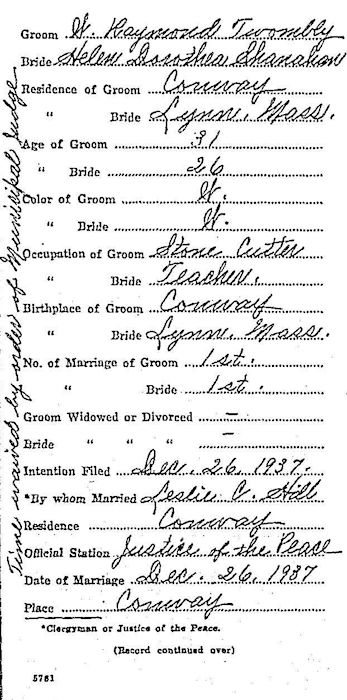 Groom W. Raymond Twombly
Bride Helen Dorothea Shanahan
Residence of Groom Conway
" Bride Lynn, Mass.
Age of Groom 31
" Bride 26
Color of Groom W.
" Bride W.
Occupation of Groom Stone Cutter
" Bride Teacher.
Birthplace of Groom Conway
" Bride Lynn, Mass.
No. of Marriage of Groom 1st.
" Bride 1st.
Groom Widowed or Divorced –
Bride " " " –
Intention Filed Dec. 26, 1937.
*By whom Married Leslie C. Hill
Residence Conway
Official Station Justice of the Peace
Date of Marriage Dec. 26, 1937
Place Conway
*Clergyman or Justice of the Peace.
(Record continued over)
5761
Time waived by order of Municipal Judge